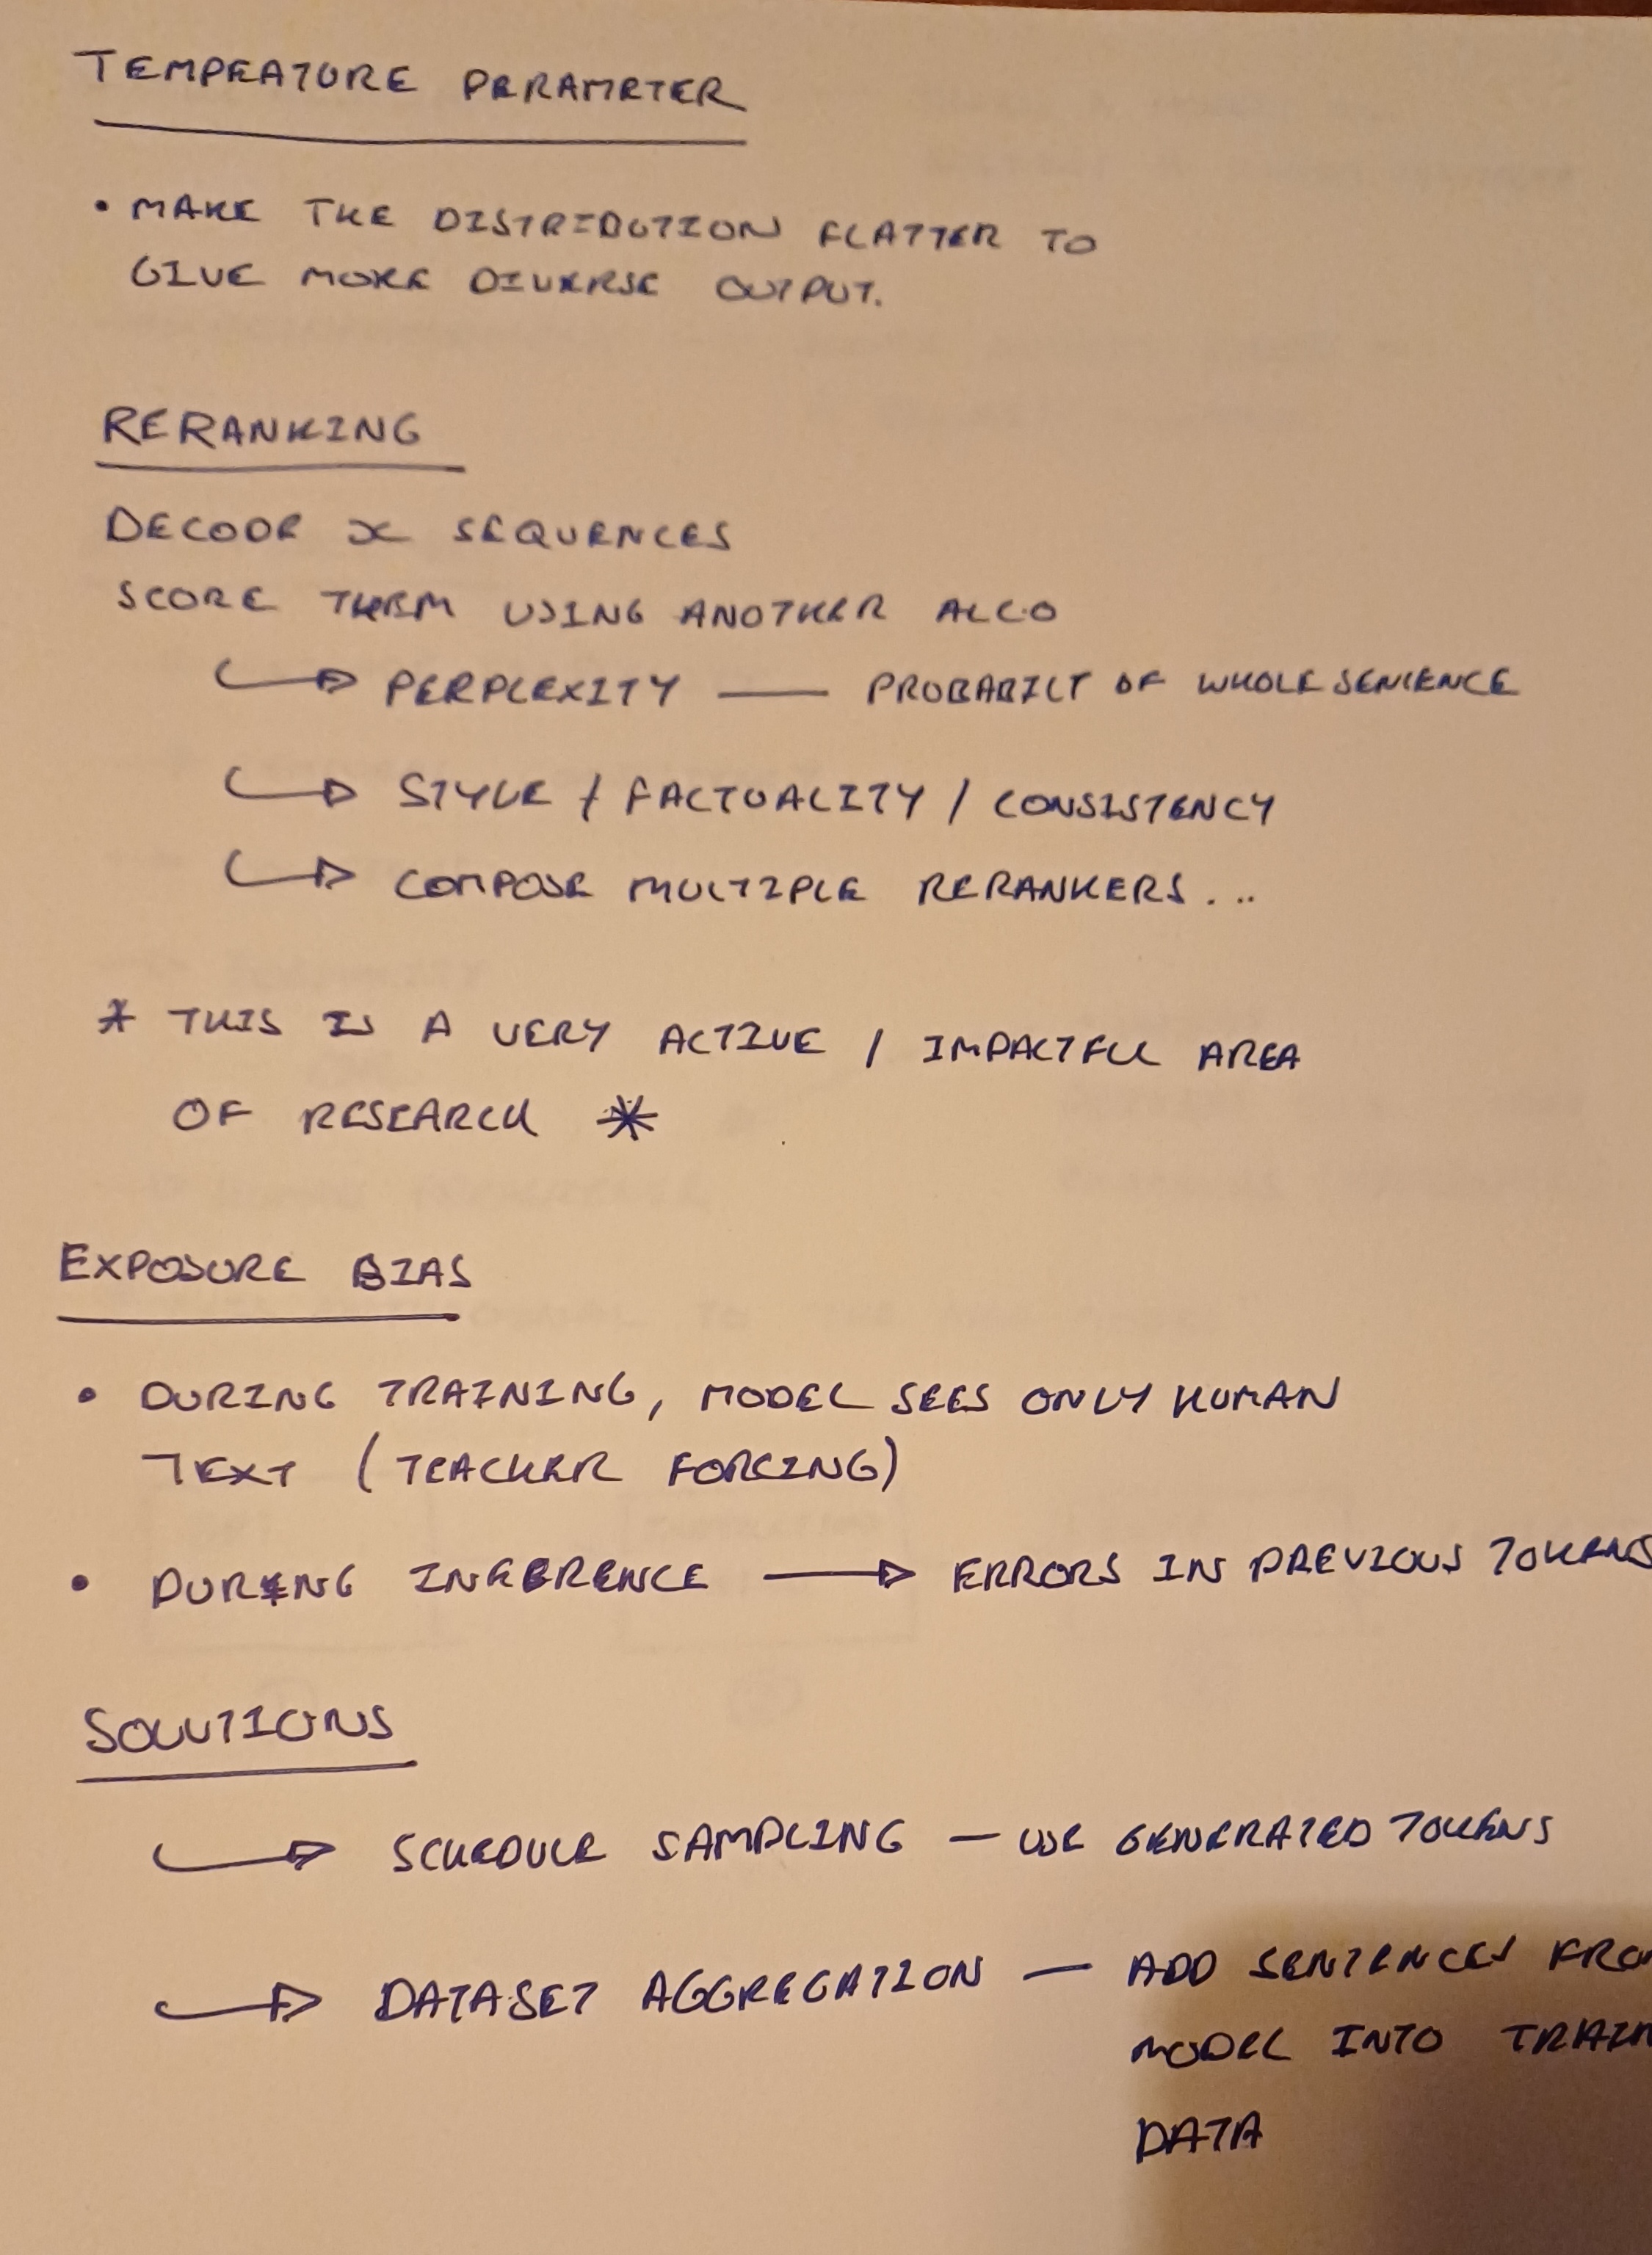 TEMPEATURE PERAMETER
• MAKE THE DISTRIBUTION FLATTER TO
GIVE MORE DIVERSE OUTPUT.
RERANKING
DECODE x SEQUENCES
SCORE THEM USING ANOTHER ALGO
↳ PERPLEXITY — PROBABILT OF WHOLE SENTENCE
↳ STYLE / FACTUALITY / CONSISTENCY
↳ COMPOSE MULTIPLE RERANKERS...
* THIS IS A VERY ACTIVE / IMPACTFUL AREA
OF RESEARCH *
EXPOSURE BIAS
• DURING TRAINING, MODEL SEES ONLY HUMAN
TEXT (TEACHER FORCING)
• DURING INFERENCE → ERRORS IN PREVIOUS TOKENS
SOLUTIONS
↳ SCHEDULE SAMPLING — USE GENERATED TOKENS
↳ DATASET AGGREGATION — ADD SENTENCES FRO
MODEL INTO TRAIN
DATA